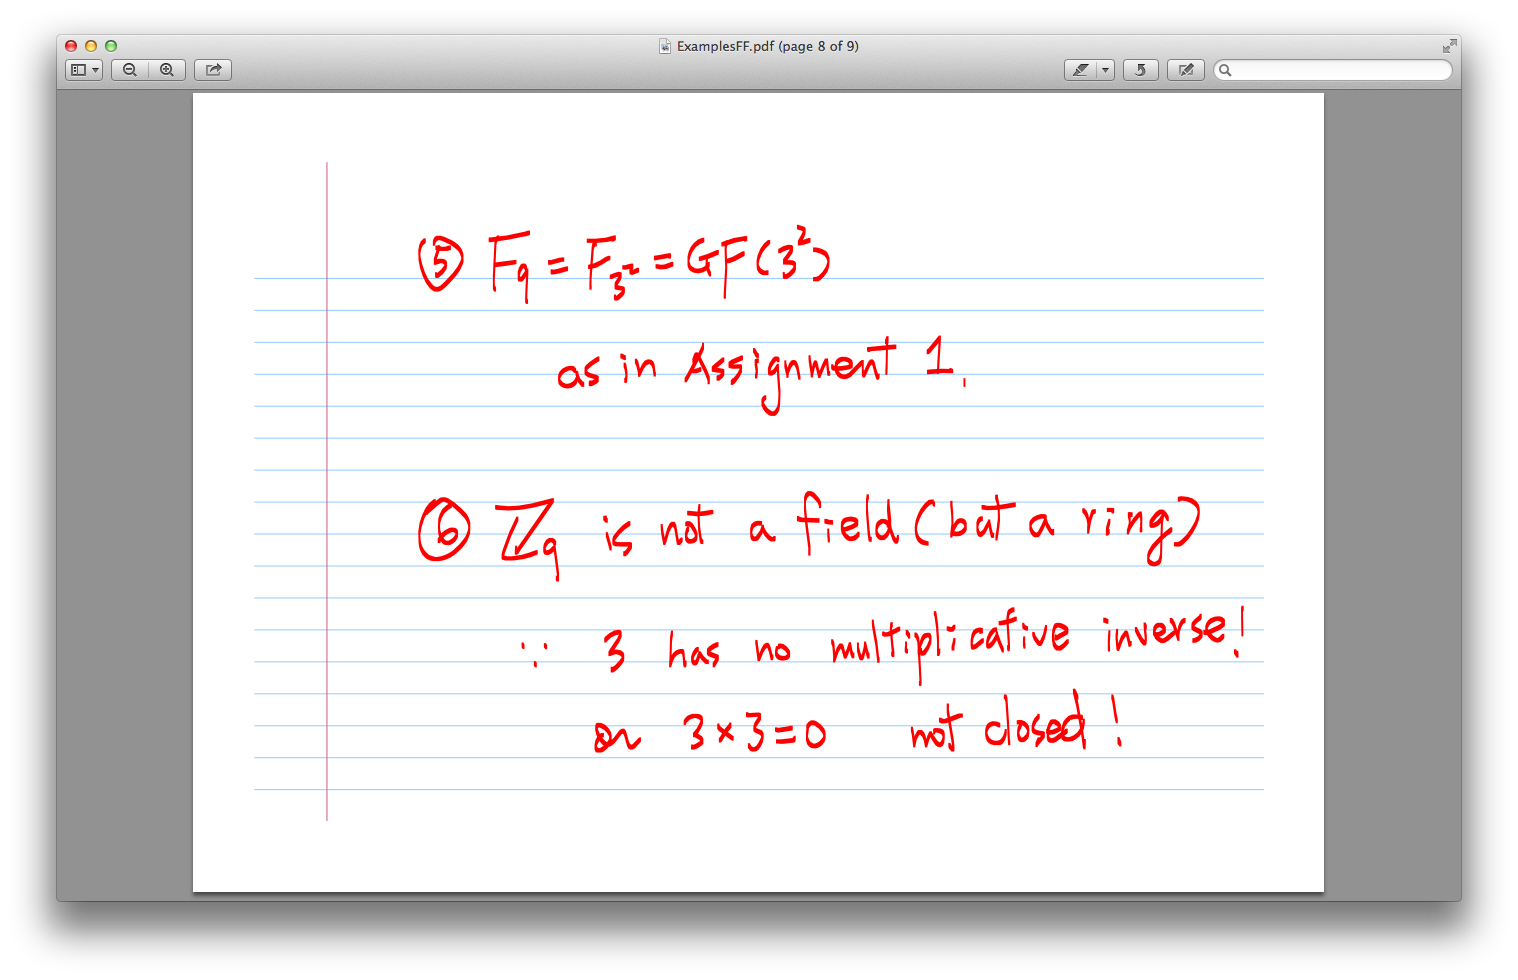 ExamplesFF.pdf (page 8 of 9)
⑤ F₉ = F₃² = GF(3²)
as in Assignment 1.
⑥ ℤ₉ is not a field (but a ring)
∵ 3 has no multiplicative inverse!
or 3×3=0 not closed!